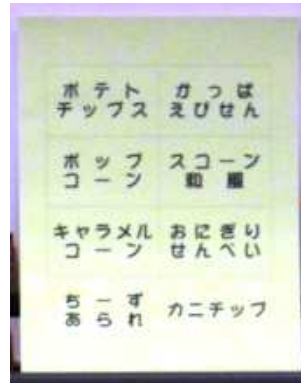 ポテト
チップス
かっぱ
えびせん
ポップ
コーン
スコーン
和風
キャラメル
コーン
おにぎり
せんべい
ちーず
あられ
カニチップ